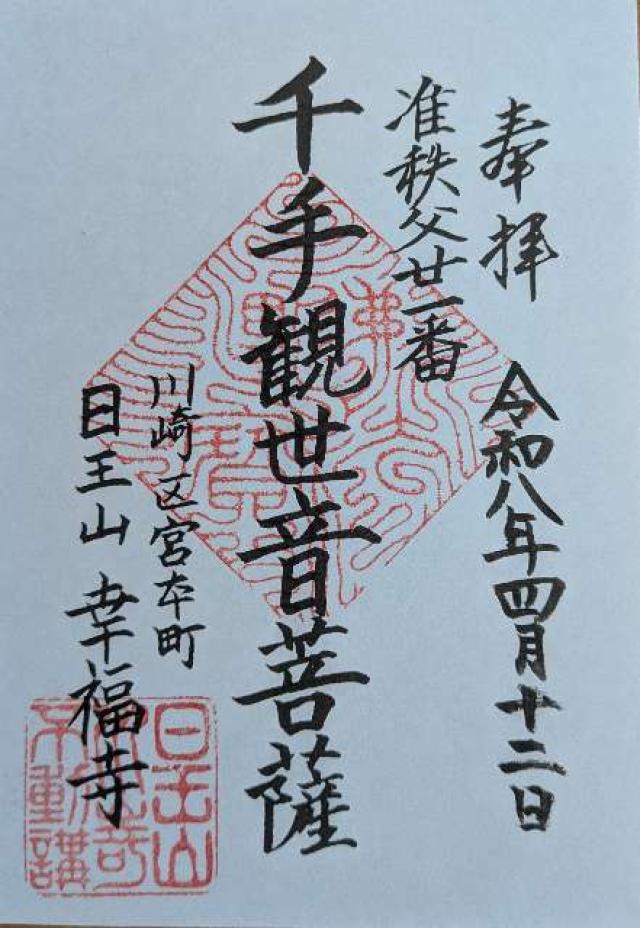 奉拝
令和八年四月十二日
准秩父廿一番
千手観世音菩薩
川崎区宮本町
日王山 幸福寺
日王山
不重講